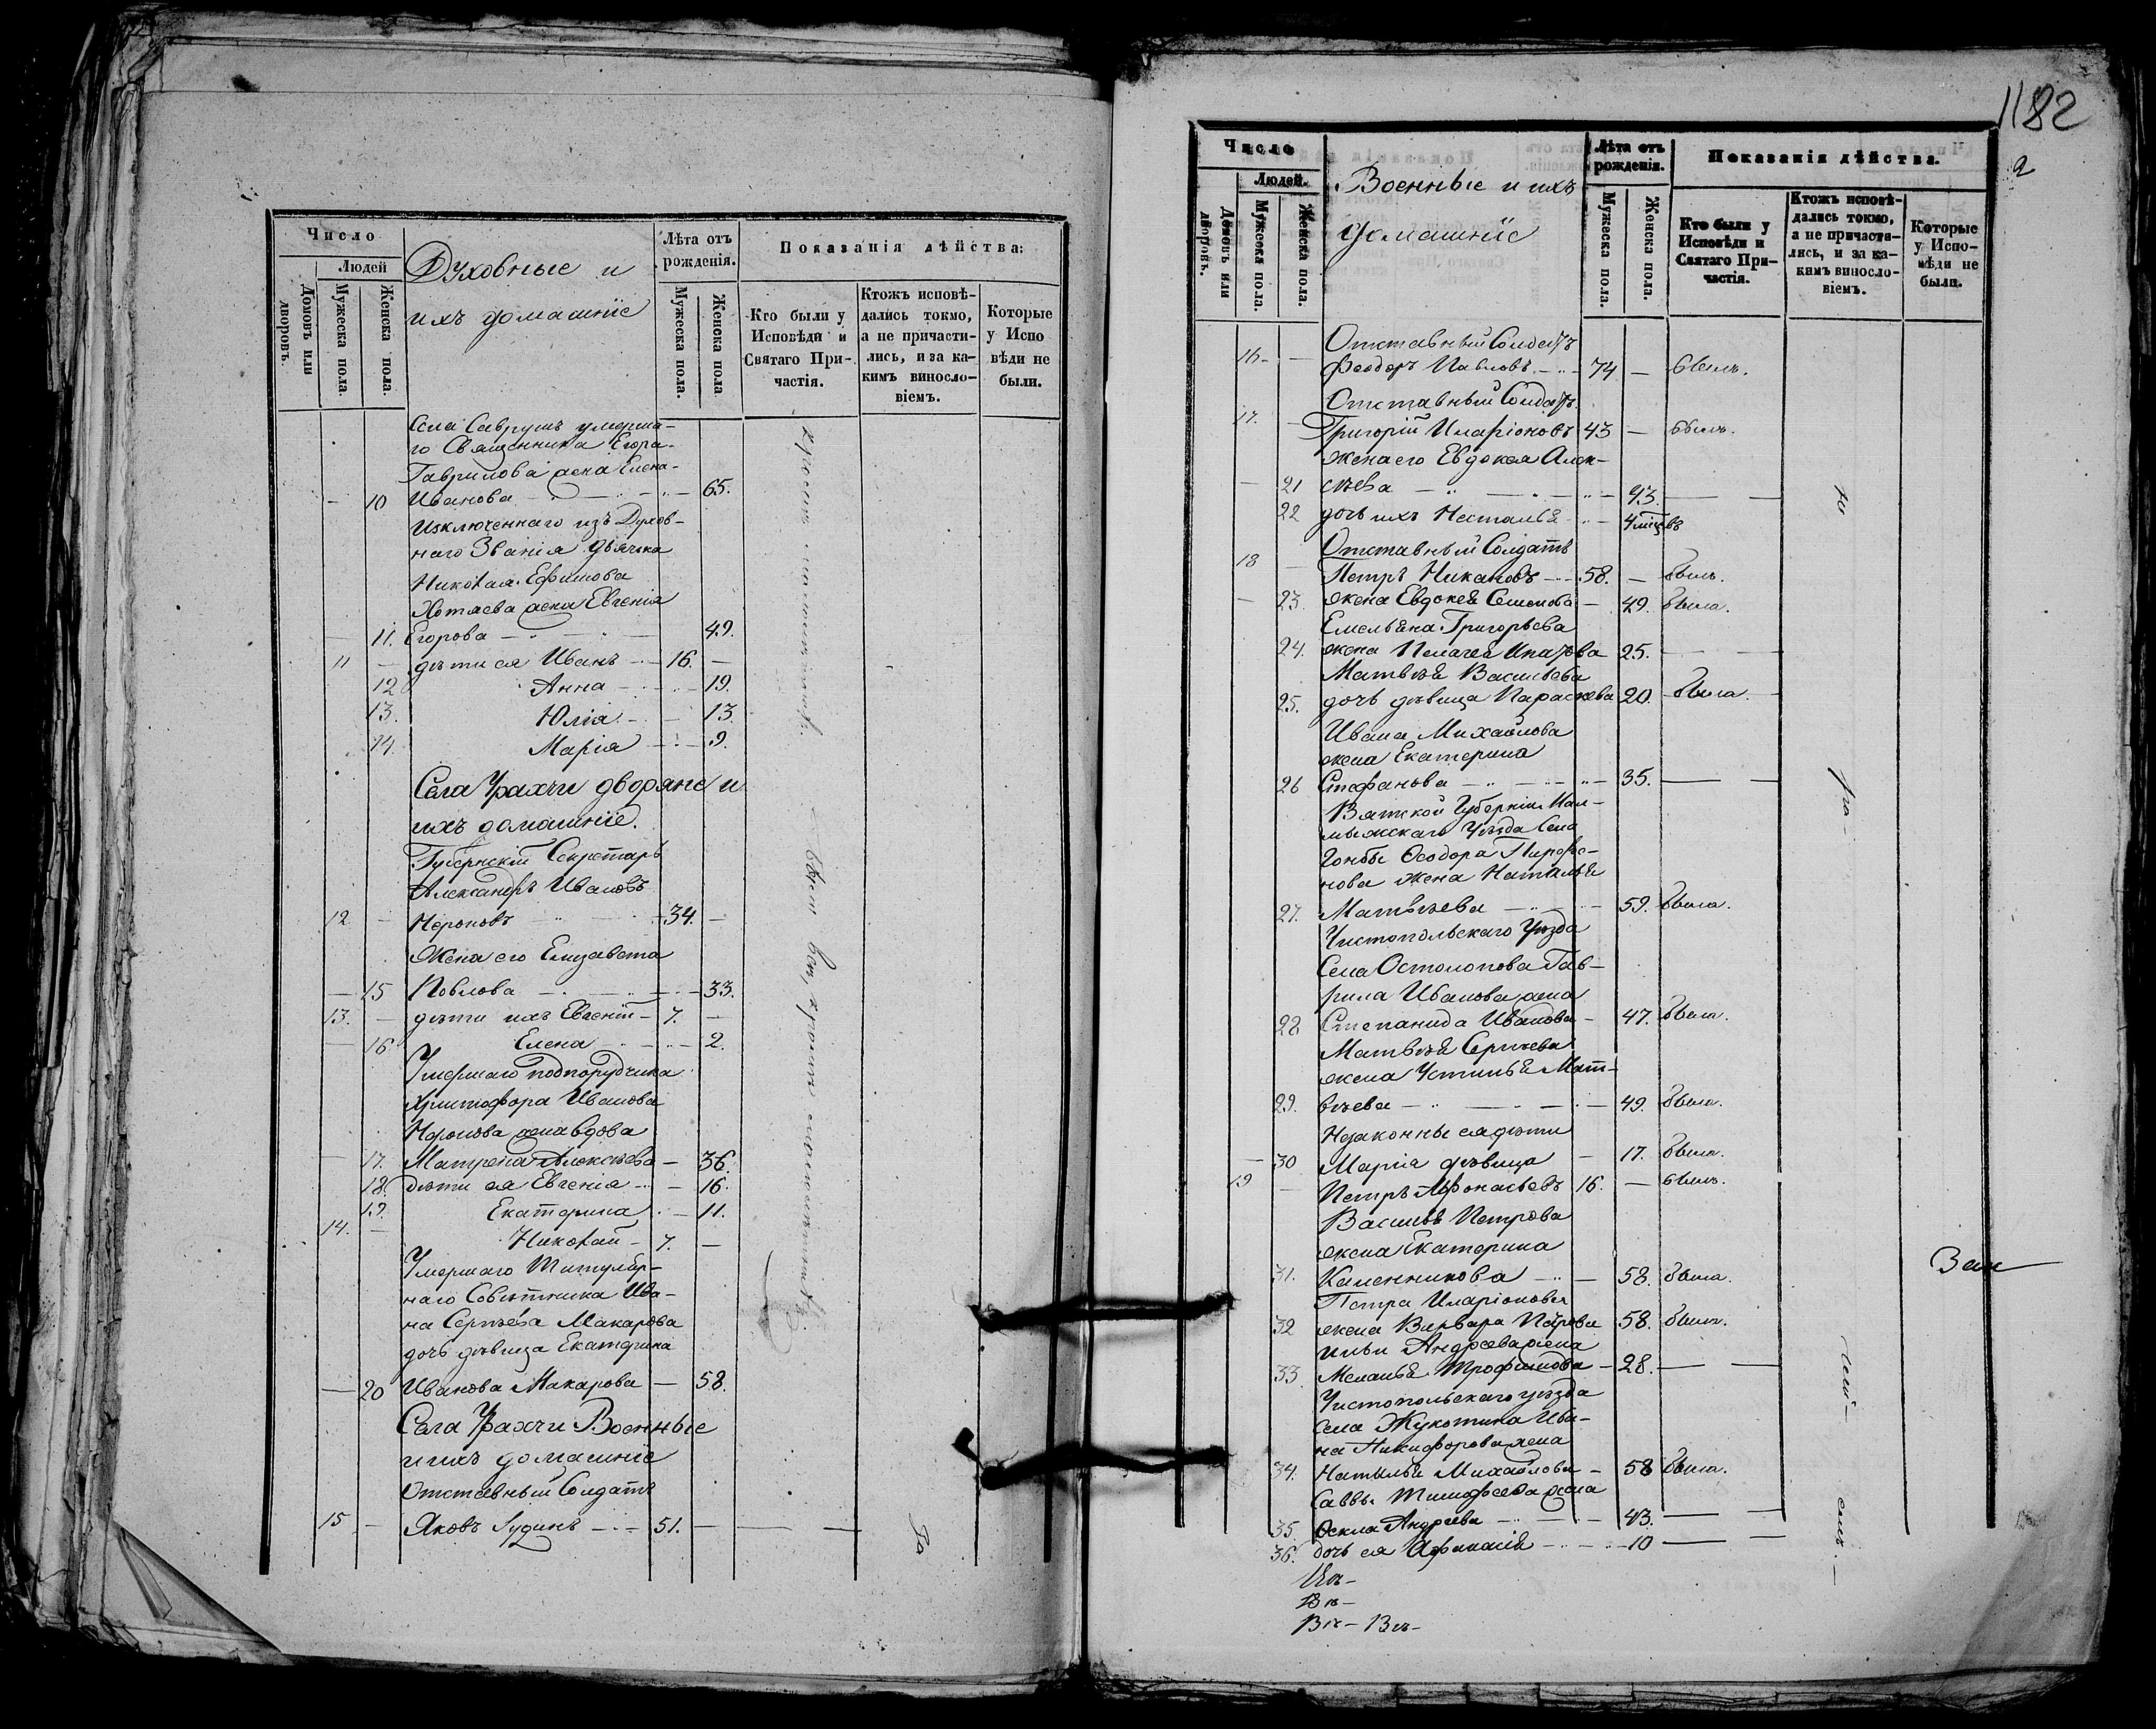 Число
Людей
Домовъ или дворовъ.
Мужеска пола
Женска пола
Духовные и
ихъ домашніе
Лѣта отъ рожденія.
Мужеска пола.
Женска пола
Показанія дѣйства:
Кто были у Исповѣди и Святаго Причастія.
Ктожъ исповѣдались токмо, а не причастились, и за какимъ винословіемъ.
Которые у Исповѣди не были.
Села Саврушъ умерша-
го Священника Егора
Гаврилова жена Елена
10 Иванова 65.
Изключеннаго изъ Духов-
наго Званія дьячка
Николая Ефимова
жена Евгенія
11. Егорова 49.
11 дѣти ея Иванъ 16.
12 Анна 19.
13. Юлія 13.
14. Марія 9.
Села Урахчи дворяне и
ихъ домашніе.
Губернскій Секретарь
Александръ Ивановъ
12. Нероновъ 34.
Жена его Елизавета
15 Павлова 33.
13. дѣти ихъ Евгеній 7.
16 Елена 2.
Умершаго подпорудчика
Христофора Иванова
Неронова жена вдова
17. Матрена Алексѣева 36.
18. дѣти ея Евгенія 16.
19. Екатерина 11.
14. Николай 7.
Умершаго Титуляр-
наго Совѣтника Ива-
на Сергѣева Макарова
дочь дѣвица Екатерина
20 Иванова Макарова 58.
Села Урахчи Военные
и ихъ домашніе
Отставный Солдатъ
15 Яковъ Іудинъ 51.
1182
2
Число
Людей.
Домовъ или дворовъ.
Мужеска пола.
Женска пола.
Военные и ихъ
домашніе
Лѣта отъ рожденія.
Мужеска пола.
Женска пола.
Показанія дѣйства.
Кто были у Исповѣди и Святаго Причастія.
Ктожъ исповѣдались токмо, а не причастились, и за какимъ винословіемъ.
Которые у Исповѣди не были.
Отставный Солдатъ
16 Феодоръ Павловъ 74 былъ.
Отставный Солдатъ
17. Григорій Иларіоновъ 43 былъ.
жена его Евдокея Алек-
21 сѣева 43
22 дочь ихъ Наталья
Отставный Солдатъ
18 Петръ 58. былъ.
23. жена Евдокея Семенова 49. была.
Емельяна Григорьева
24. жена Пелагея 25.
Матвея Васильева
25. дочь дѣвица Параскева 20. была.
Ивана Михайлова
жена Екатерина
26 Стефанова 35.
Вятской Губерніи Мал-
мыжскаго Уѣзда Села
Гоньбы Феодора
жена Наталья
27. Матвѣева 59. была.
Чистопольскаго Уѣзда
Села Остолопова Гав-
рила Иванова жена
28 Степанида Иванова 47. была.
Матвѣя Сергѣева
жена Устинья Мат-
29. вѣева 49. была.
Незаконные ея дѣти
30 Марія дѣвица 17. была.
19 Петръ Афонасьевъ 16. былъ.
Василья Петрова
жена Екатерина
31. 58. была.
Петра Иларіонова
32 жена Варвара Петрова 58. была.
Ильи Андреева жена
33 Меланья Трофимова 28.
Чистопольскаго уѣзда
села Жукотина Ива-
на Никифорова жена
34. Наталья Михайлова 58 была.
Саввы Тимофеева жена
35. Фекла Андреева 43.
36. дочь ея 10